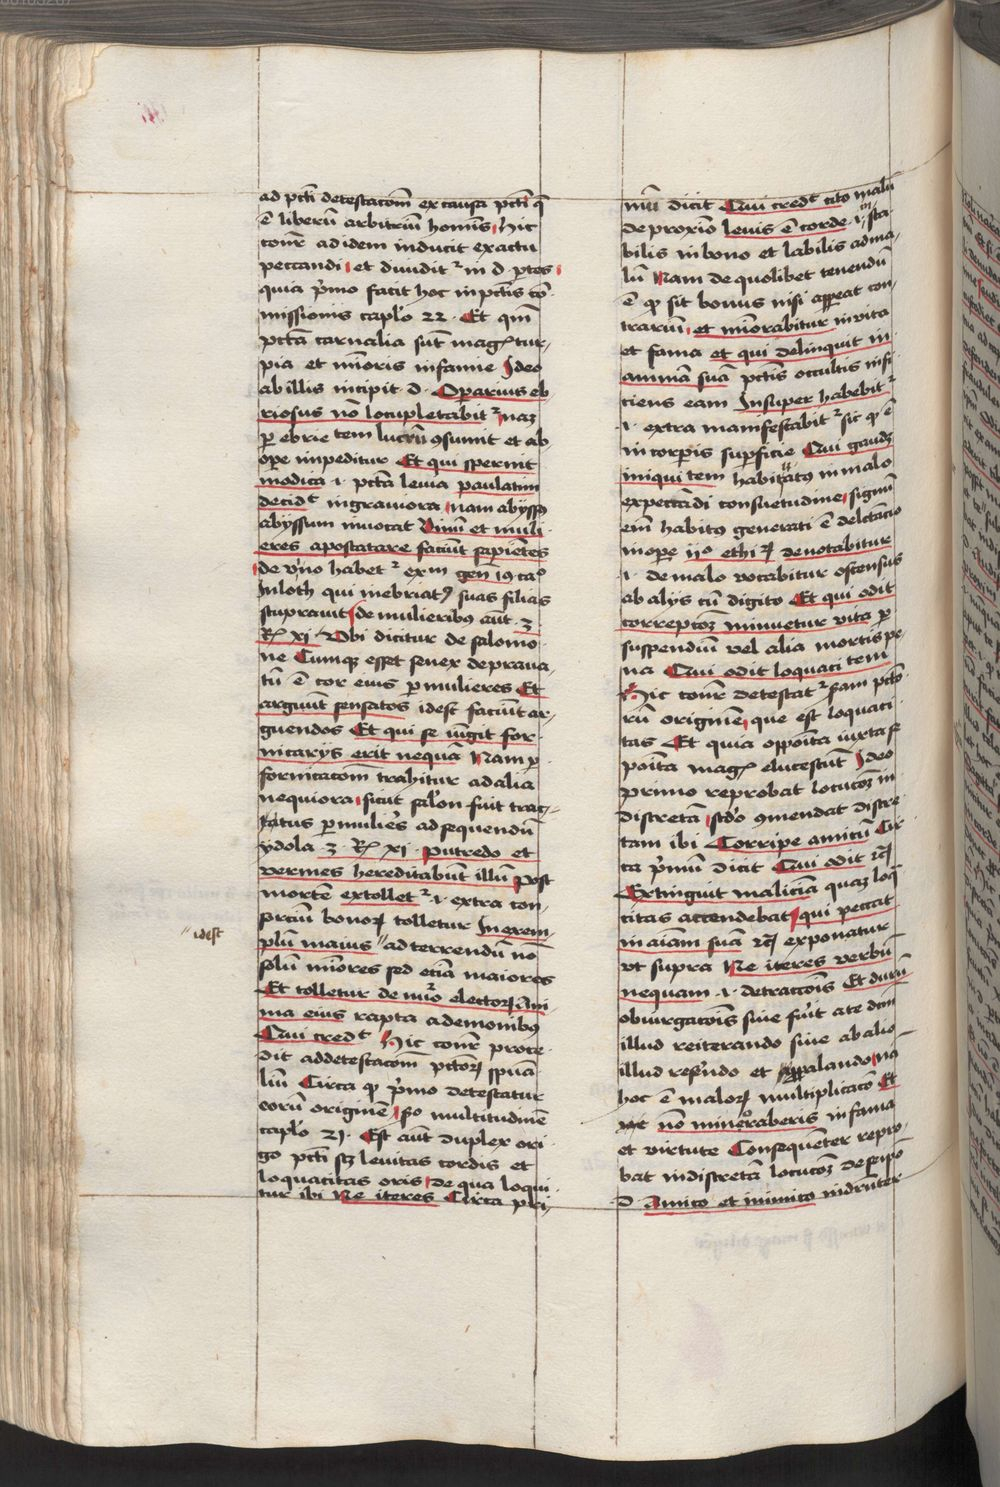 ad pcti detestacōm ex causa pcti q̄
ē liberū arbitriū hominis Hic
conr̄ ad idem inducit ex actu
peccandi et diuidit᷑ in d ptes
quia pͥmo facit hoc in pctis cō
missionis caplo 22 · Et qm̄
pctā carnalia sūt mag᷑ tur
pia et mīoris infamie Ideo
ab illis incipit · d · Operarius eb
riosus nō locupletabit᷑ naʒ
p̄ ebrietem lucrū ꝯsumit et ab
ope impeditur Et qui spernit
modica · i · pctā leuia paulatim
decidᷓt in grauiora nam abyssꝰ
abyssum inuocat Vinū et muli
eres apostatare faciūt sapiētes
de vino habet᷑ exm gen̄ 19 caᵒ
In loth qui inebriatꝰ suas filias
stuprauit de mulieribꝰ aūt · 3
Rꝭ xi · Vbi dicitur de salomo
ne Cumqꝫ esset senex deprauа
tū ē cor eius p mulieres Et
arguūt sensatos idest faciūt ar
guendos Et qui se iūgit for
nicarijs erit nequā Nam p
fornicacōm trahitur ad alia
nequiora sicut salon fuit trac
tatus p mulieˀs ad sequendū
ydola 3 · Rꝭ xi · Putredo et
vermes hereditabūt illū post
mortē extollet᷑ · i · extra con
sorciū bonoꝝ tolletur In exem
plū maius ad terrendū nō
idest
solū mīores sed etiā maiores
Et tolletur de nūͦo electoꝝ ani
ma eius rapta a demonibꝰ
Qui credᷓt Hic conr̄ proce
dit ad detestacōm pctōꝝ spūa
liū Circa qᷓ pͥmo detestatur
eorū originē s̄o multitudinē
caplo 21 · Est aūt duplex ori
go pcti scꝫ leuitas cordis et
loquacitas oris de qua loqui
tur ibi Ne iteres Circa pri
mū dicit Qui credᷓt cito malū
de proxīo leuis ē corde · i · insta
bilis in bono et labilis ad ma
lū Nam de quolibet tenendū
ē qᷓ sit bonus nisi appeat con
trariū et mīorabitur in vita
et fama et qui delinquit in
animā suā pctis occultis insi
ciens eam Insuper habebit᷑
· i · extra manifestabit᷑ sic qᷓ ē
in corpis supficie Qui gaudꝫ
iniquitem habituatꝰ in malo
expectādi consuetudine signū
em̄ habitꝰ generati ē delctacio
in ope ijᵒ ethiꝝ denotabitur
· i · de malo vocabitur ostensus
ab alijs cū digito Et qui odit
correptōꝫ minuetur vita p
suspendiū vel alia mortis pe
na Qui odit loquacitem
Hic conr̄ detestat᷑ s̄am pctō
rū originē que est loquaci
tas Et quia opposita iuxta se
posita mag᷑ elucescūt Ideo
primo reprobat locucōꝫ in
discretā scd̓o ꝯmendat discre
tam ibi Corripe amicū Cir
ca pͥmū dicit Qui odit ꝛcͣ
Extinguit maliciā quaꝫ loq̄
citas accendebat qui peccat
in aīam suā ꝛcͣ exponatur
vt supra Ne iteres verbū
nequam · i · detraccōis Et durū
obiurgacōis siue fuˀit a te dcm̄
illud reiterando siue ab alio
illud refeˀndo et palando nā
hoc ē maloꝝ multiplicacō Et
nō minoraberis in fama
et virtute Consequēter repro
bat indiscretā locucōꝫ de seipō
d Amico et inimico indr̄nter